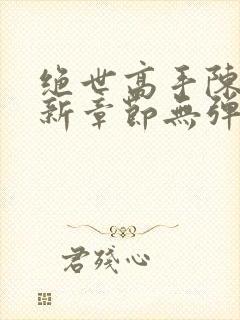 绝世高手陳
新章節無彈
君殘心